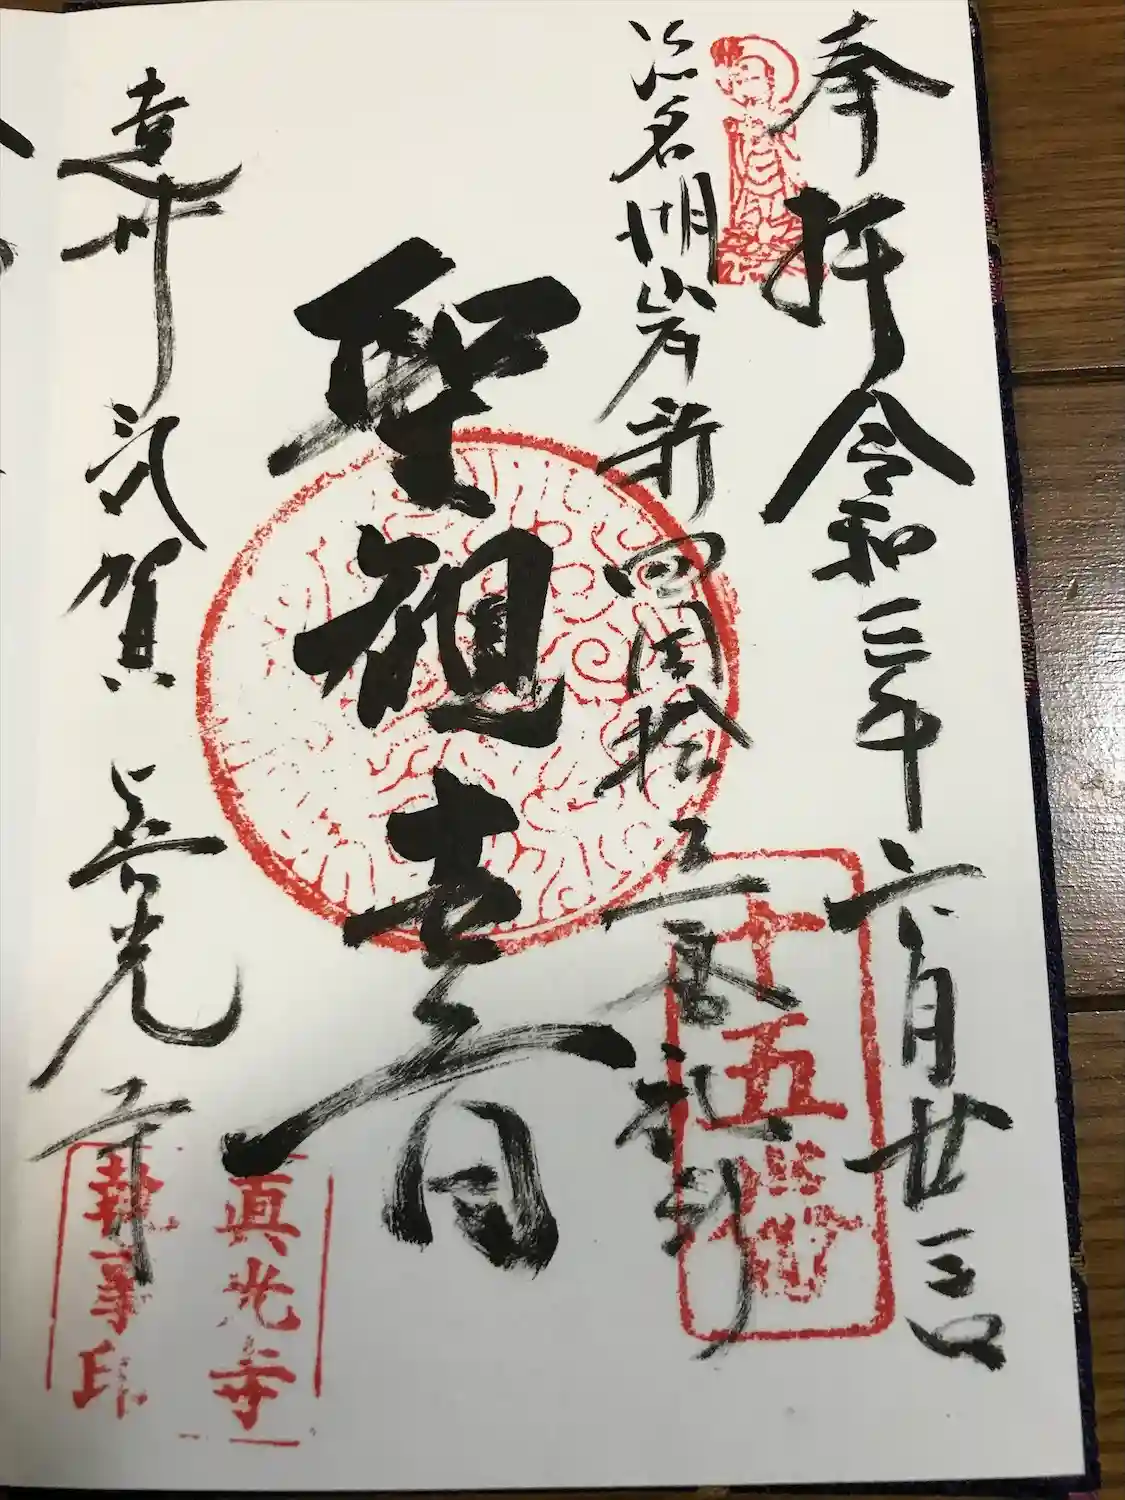 奉拝 令和三年六月廿三日
浜名湖岸新四国拾五番札所
十五番
聖観音
遠州 気賀 真光寺
真光寺
執事印